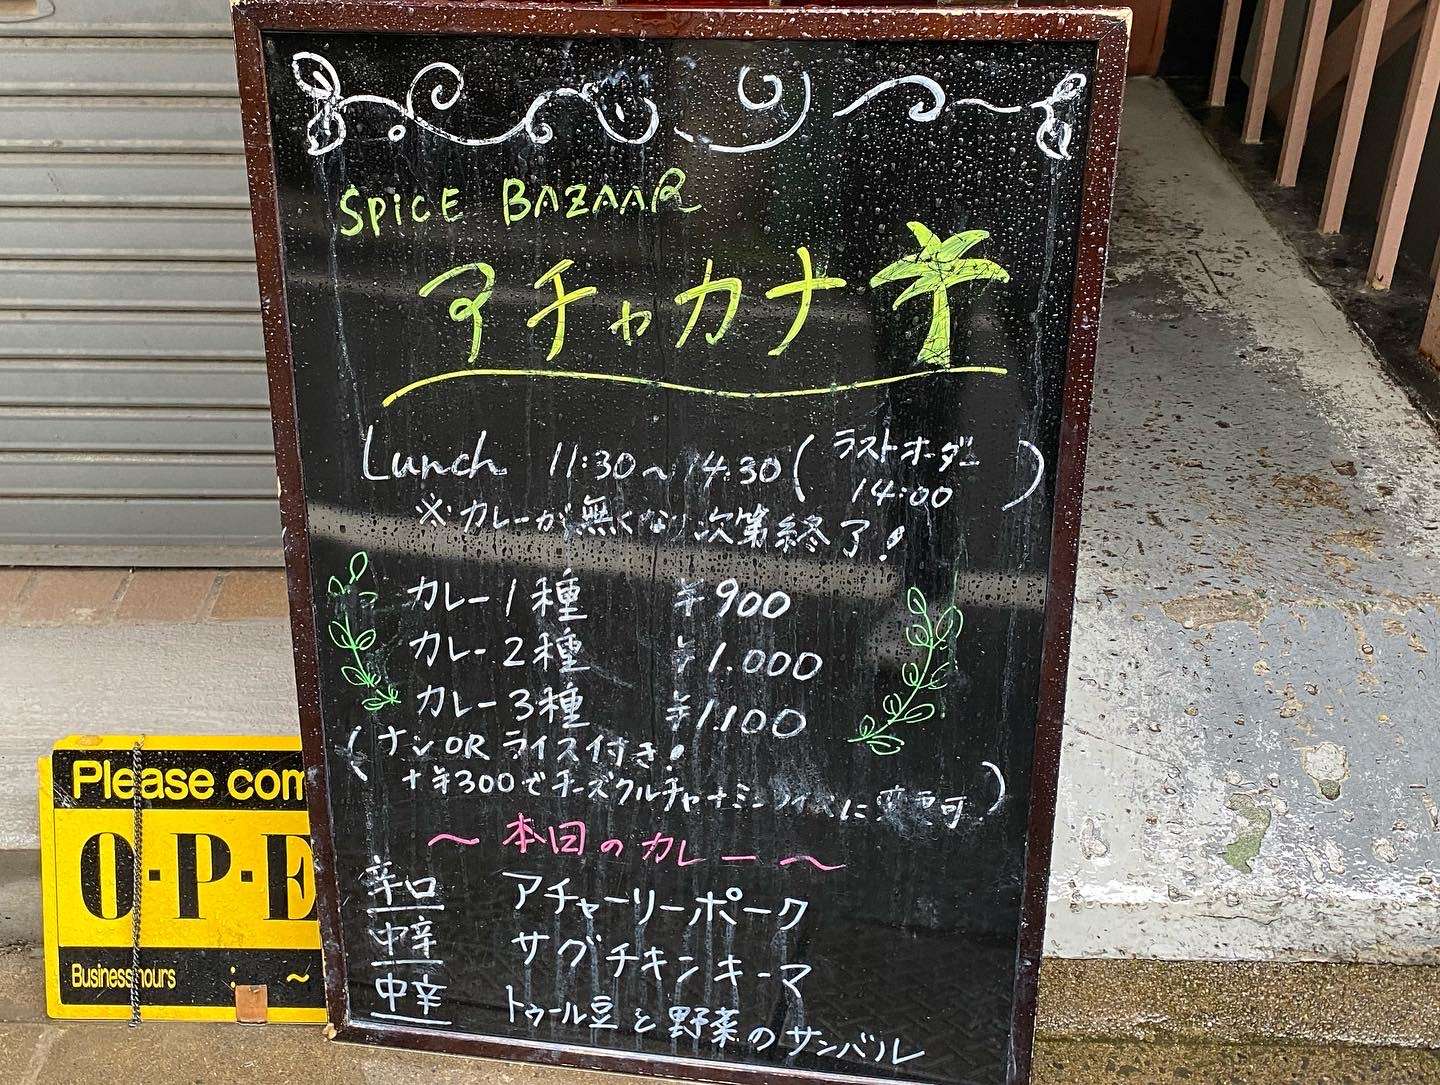 SPICE BAZAAR
アチャカナ
Lunch 11:30~14:30(ラストオーダー
14:00)
※カレーが無くなり次第終了!
カレー1種 ¥900
カレー2種 ¥1.000
カレー3種 ¥1.100
(ナンORライス付き!
+¥300でチーズクルチャorナミンライスに変更可)
~本日のカレー~
辛口 アチャーリーポーク
中辛 サグチキンキーマ
中辛 トゥール豆と野菜のサンバル
Please com
O・P・E
Business hours : ~